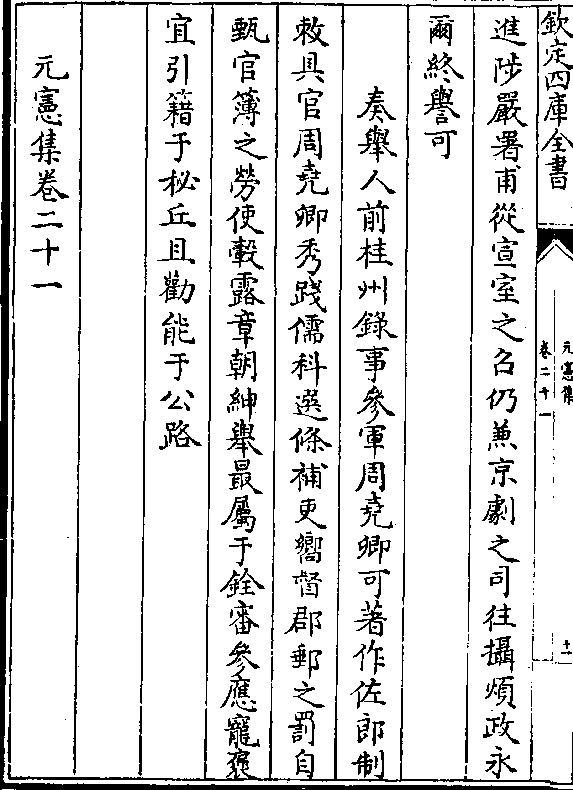 欽定四庫全書
元憲集
卷二十一
十一
進陟嚴署甫從宣室之召仍兼京劇之司往攝煩政永
爾終譽可
奏舉人前桂州錄事參軍周堯卿可著作佐郎制
敕具官周堯卿秀踐儒科選條補吏嚮督郡郵之罰自
甄官簿之勞使轂露章朝紳舉最屬于銓審參應寵褒
宜引籍于秘丘且勸能于公路
元憲集卷二十一